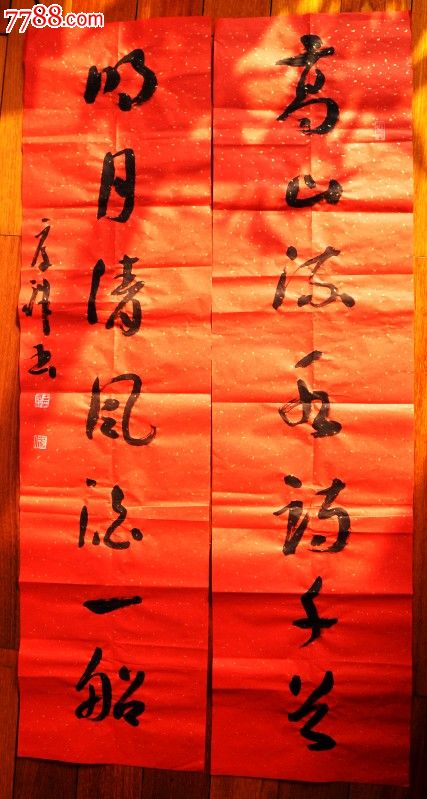 7788.com
高山流水詩千首
明月清風酒一船